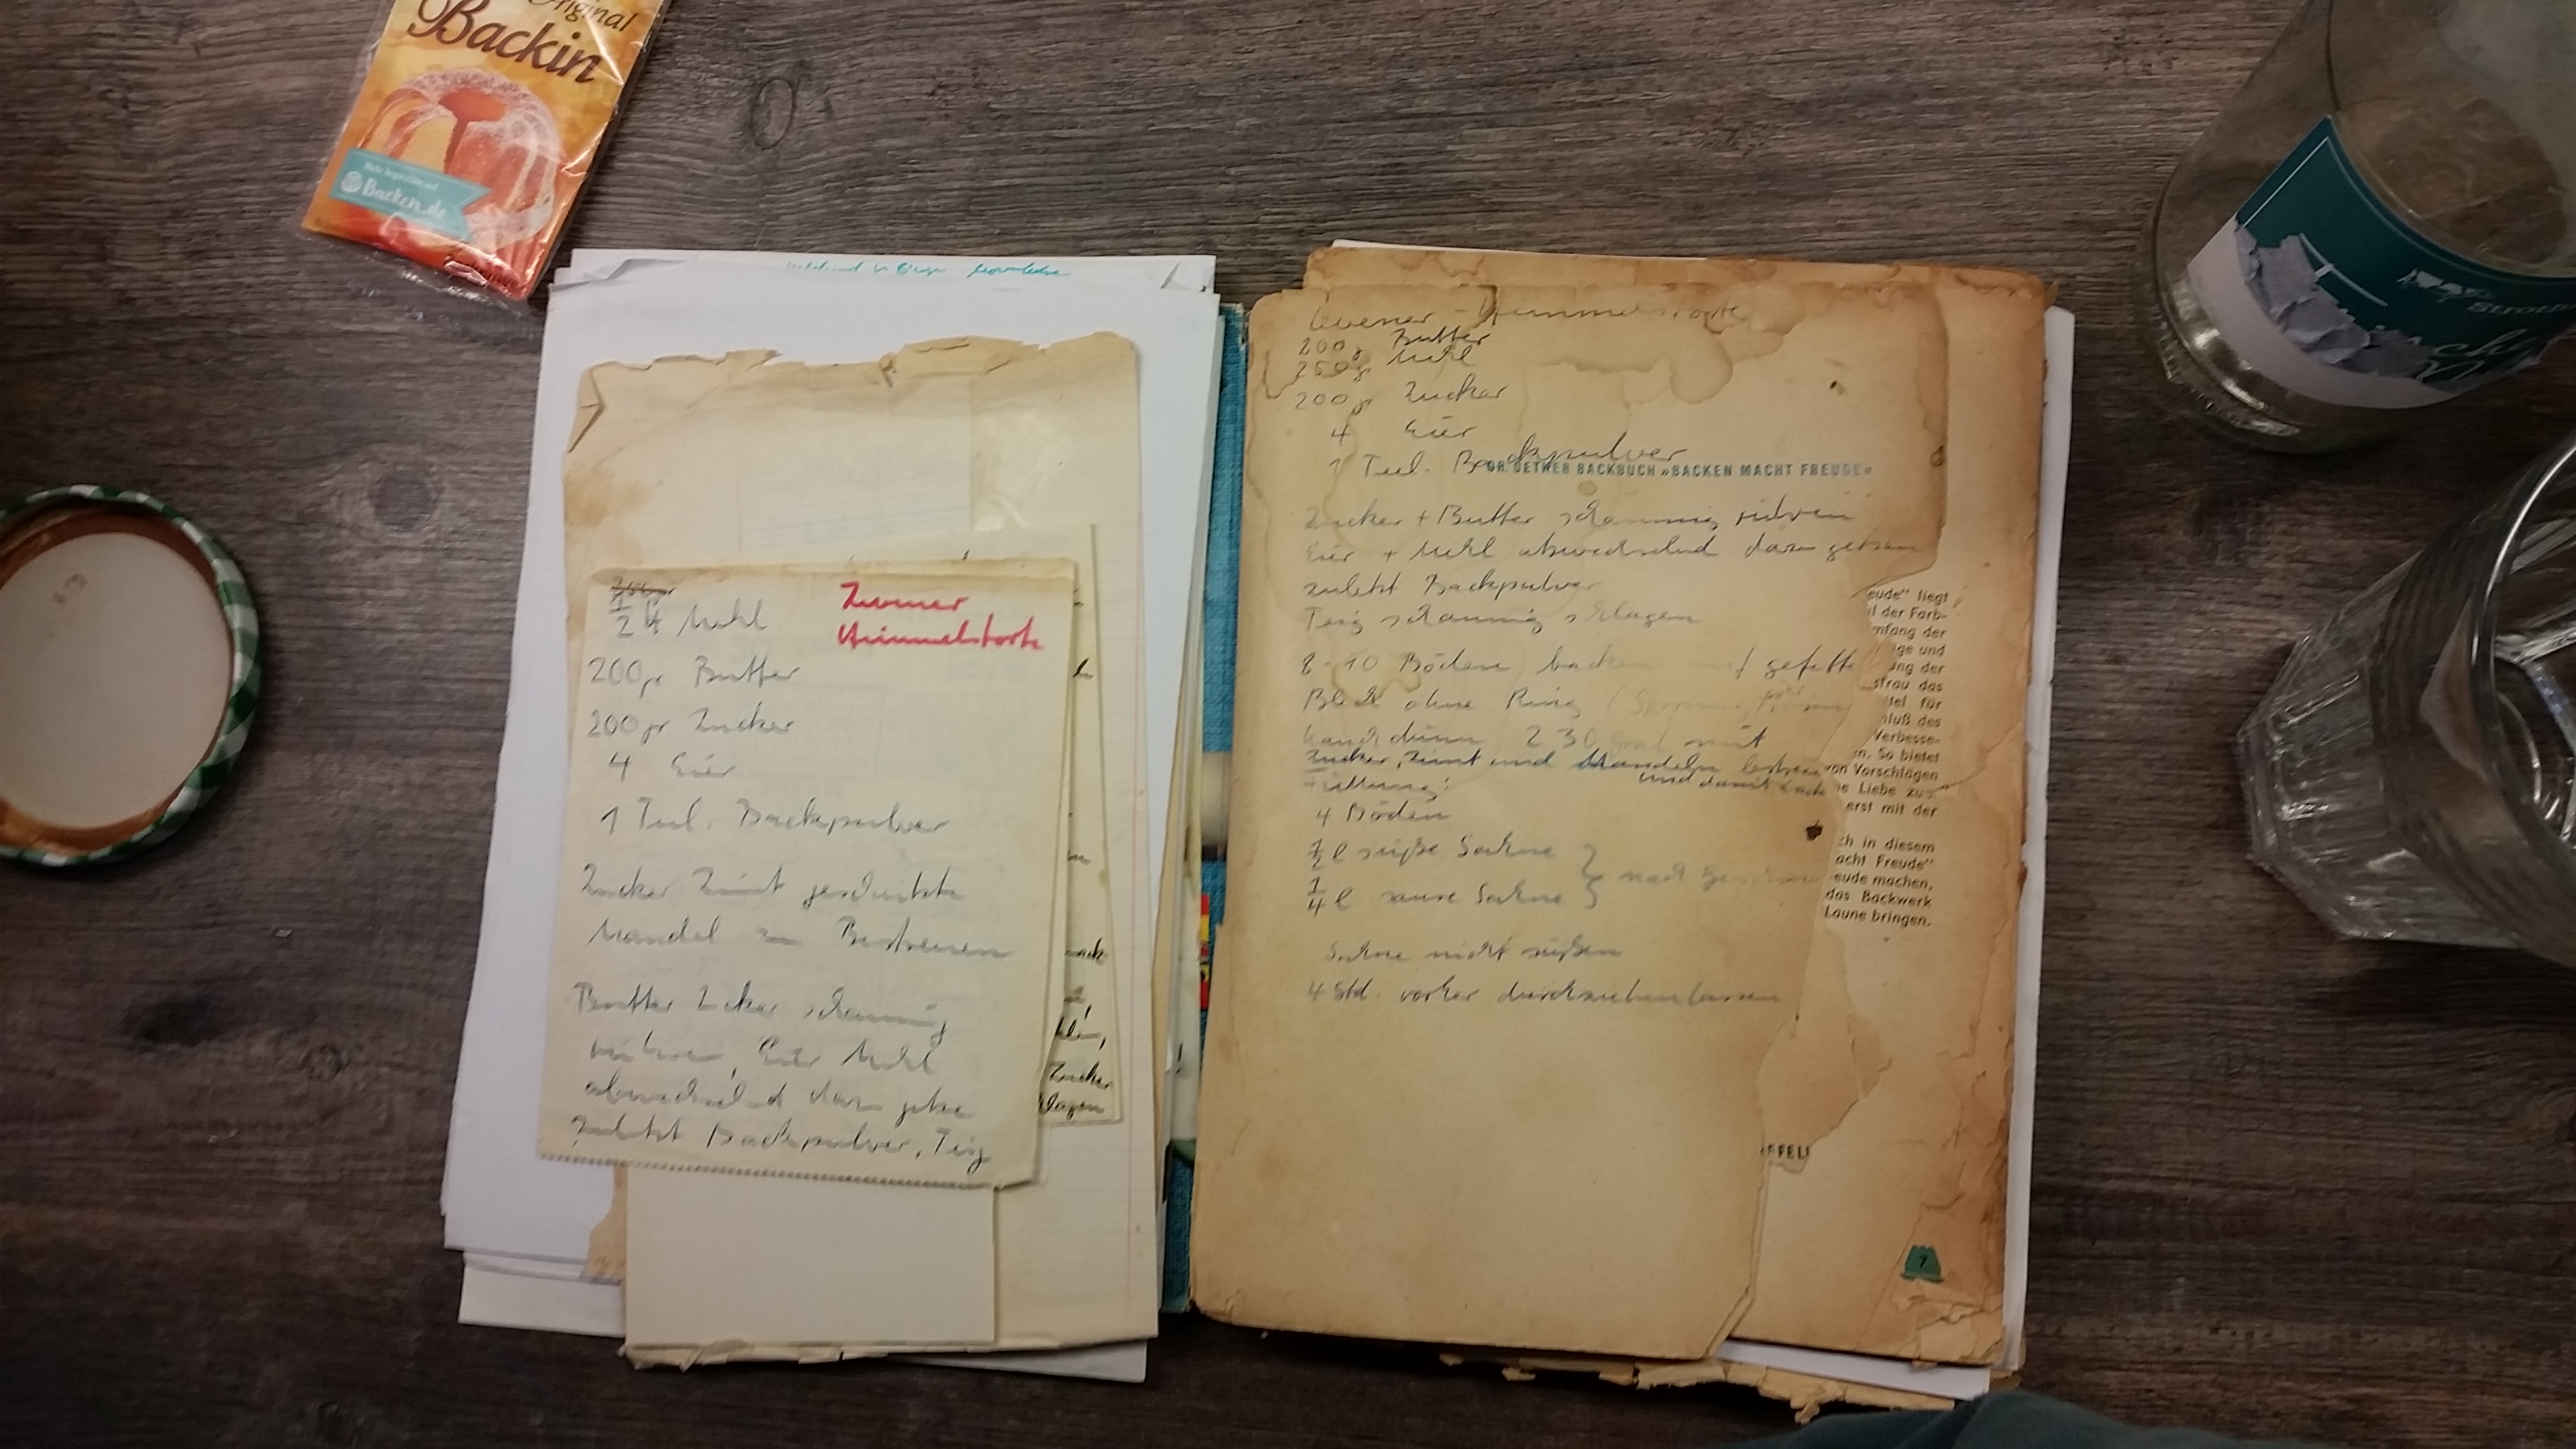 Original
Backin
Backen.de
Zuckers
1/2 ℔ Mehl
Zevener
Himmelstorte
200gr Butter
200gr Zucker
4 Eier
1 Teel. Backpulver
Zucker Zimt
Mandel zum Bestreuen
Butter Zucker schaumig
rühren, Eier Mehl
abwechselnd dazu gebe
zuletzt Backpulver, Teig
Zucker
lagen
Zevener - Himmelstorte
200gr Butter
250gr Mehl
200gr Zucker
4 Eier
1 Teel. Backpulver
DR. OETKER BACKBUCH »BACKEN MACHT FREUDE«
Zucker + Butter schaumig rühren
Eier + Mehl abwechselnd dazu geben
zuletzt Backpulver
Teig schaumig schlagen
8-10 Böden backen auf gefette
Blech ohne Ring (Springform
hauchdünn 230 Grad mit
Zucker, Zimt und Mandeln
und damit
Füllung:
4 Böden
1/2 l süße Sahne
1/4 l saure Sahne } nach
Sahne nicht süßen
4 Std. vorher durchziehen lassen
eude" liegt
l der Farb-
mfang der
ige und
ang der
sfrau das
tel für
hluß des
Verbesse-
n. So bietet
von Vorschlägen
e Liebe zu
erst mit der
ch in diesem
acht Freude"
eude machen,
das Backwerk
Laune bringen.
FFEL!
7